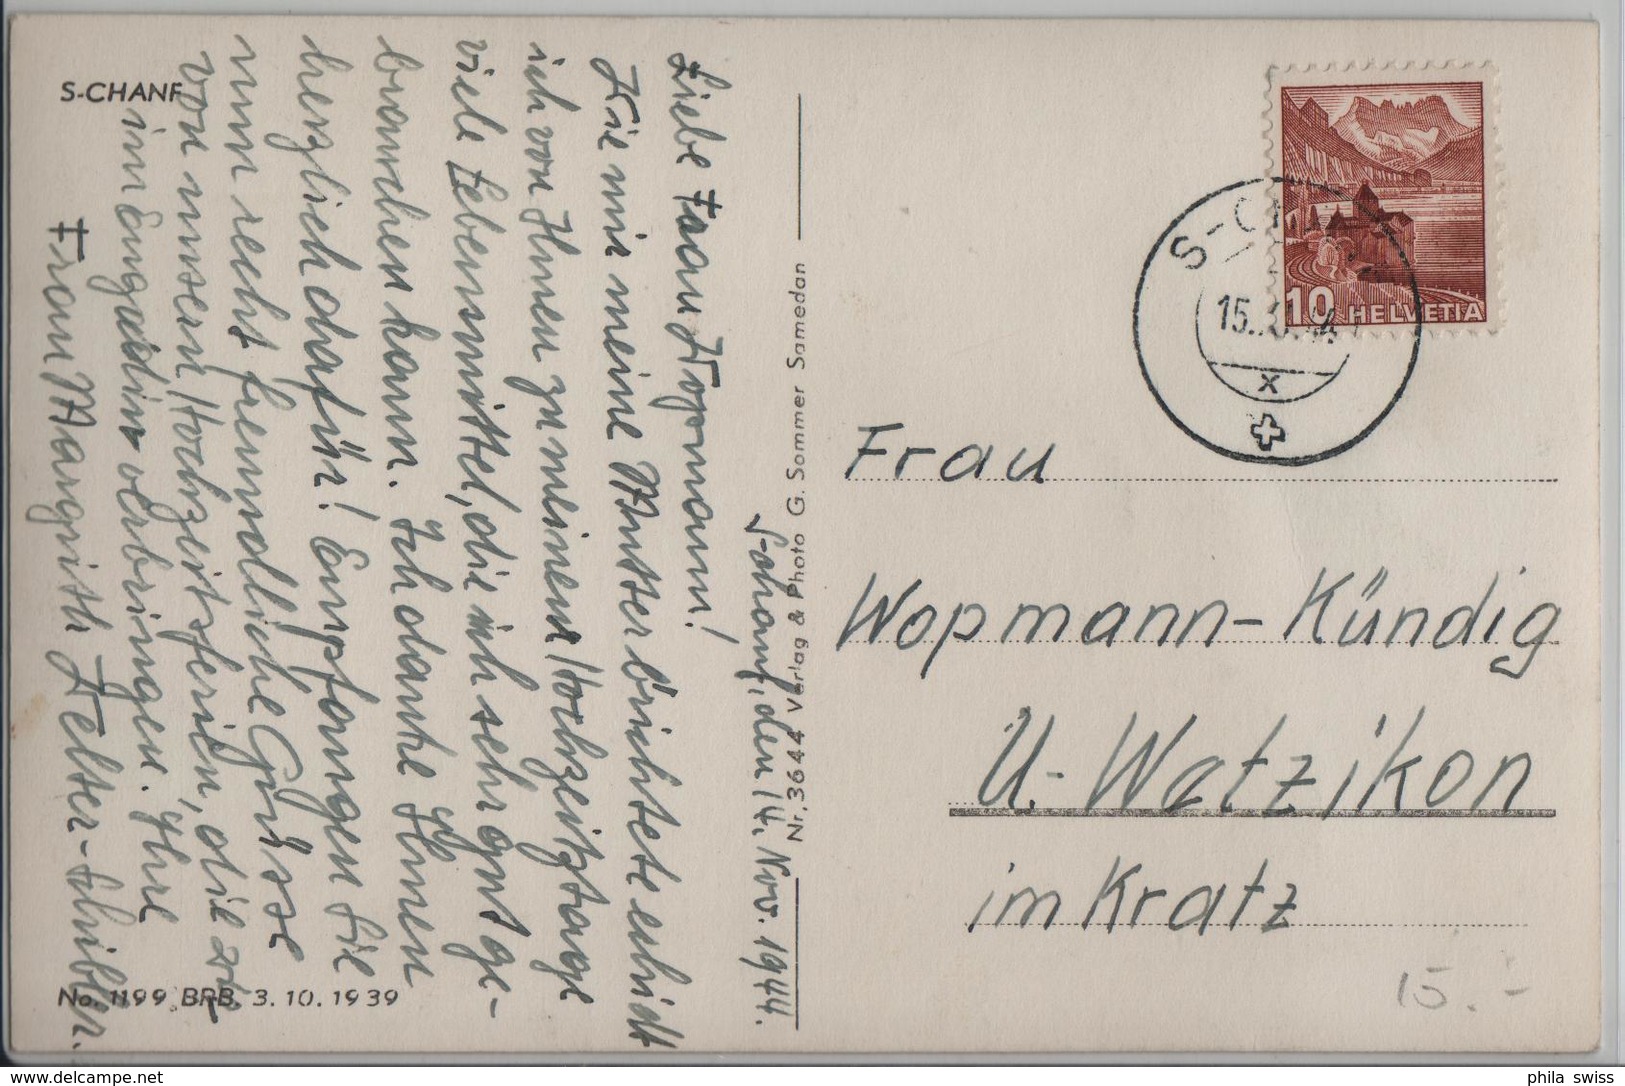 S-CHANF
S-chanf, den 14. Nov. 1944.
Liebe Frau Wopmann!
Wie mir meine Mutter brichtete erhielt
ich von Ihnen zu meinem Hochzeitztage
viele Lebensmittel, die ich sehr gut ge-
brauchen kann. Ich danke Ihnen
herzlich dafür! Empfangen Sie
nun recht freundliche Grüsse
von unsern Hochzeitsferien, die wir
im Engadin verbringen. Ihre
Frau Margrith Zelter-Schibler.
No. 1199 BRB. 3.10.1939
Nr. 3644 Verlag & Photo G. Sommer Samedan
HELVETIA
10
S-CHANF
15. 44
x
Frau
Wopmann-Kündig
U.-Wetzikon
im Kratz
15.-
phila swiss